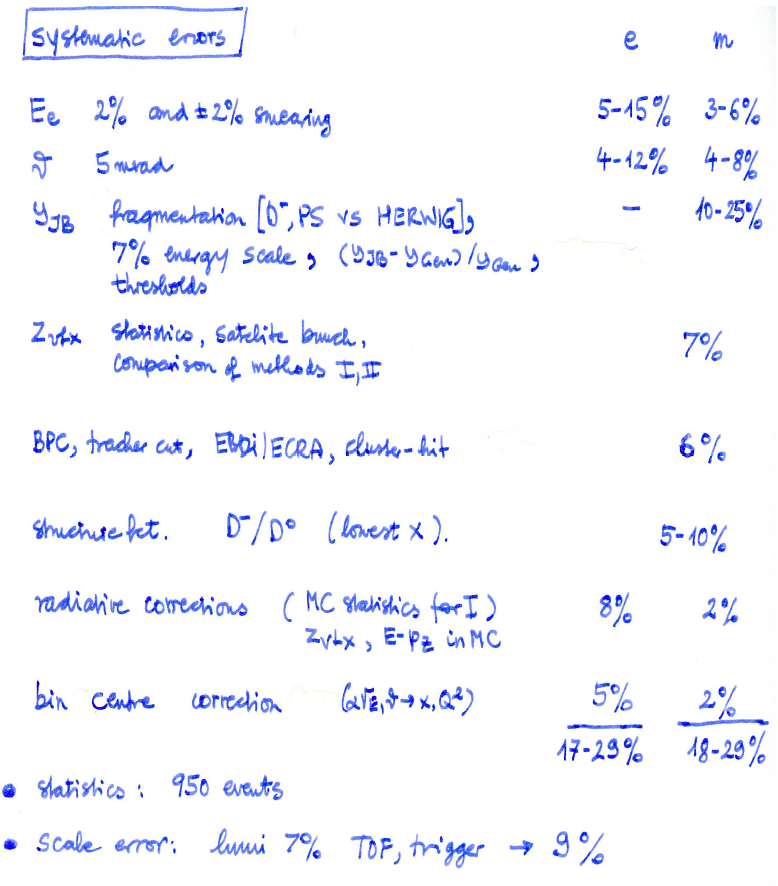 Systematic errors e m
Ee 2% and ±2% smearing 5-15% 3-6%
ϑ 5 mrad 4-12% 4-8%
yJB fragmentation [D⁻, PS vs HERWIG], – 10-25%
7% energy scale, (yJB-yGen)/yGen,
thresholds
Zvtx statistics, satelite bunch, 7%
comparison of methods I, II
BPC, tracker cut, EBDi/ECRA, cluster-hit 6%
structure fct. D⁻/D⁰ (lowest x). 5-10%
radiative corrections (MC statistics for I) 8% 2%
Zvtx, E-Pz in MC
bin centre correction (α√E, ϑ→x, Q²) 5% 2%
17-29% 18-29%
• statistics: 950 events
• scale error: lumi 7% TOF, trigger → 9%